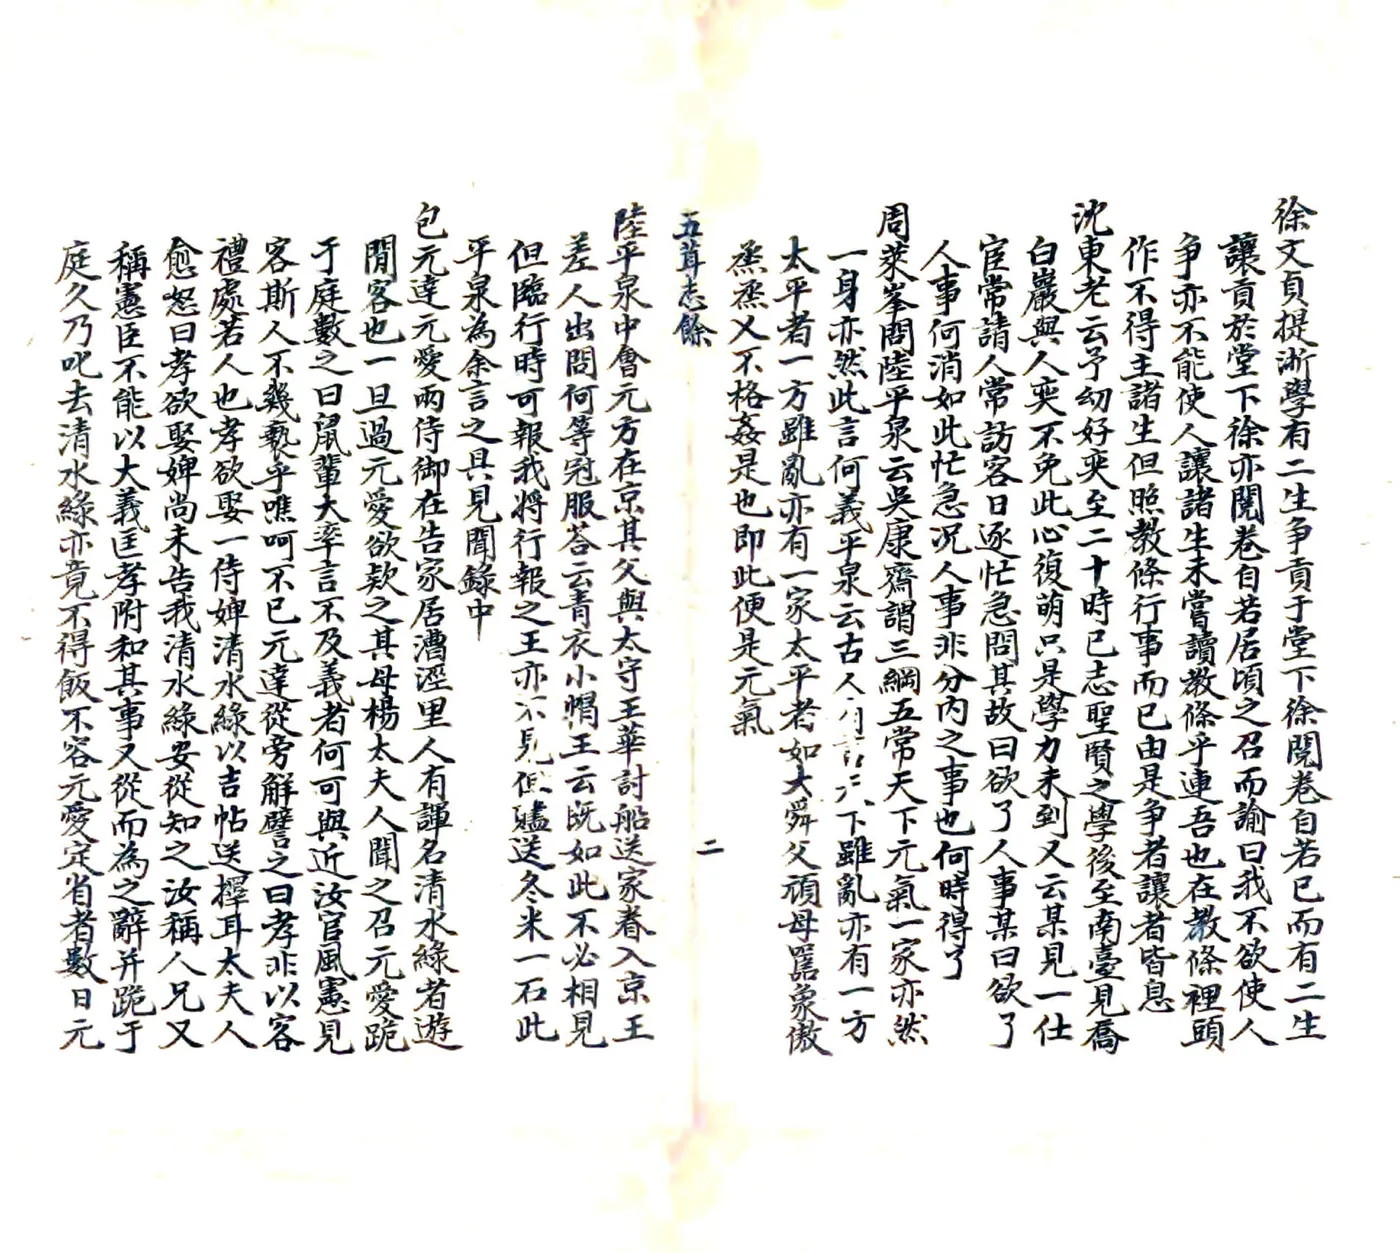 徐文貞提浙學有二生争貢于堂下徐閱卷自若已而有二生
讓貢於堂下徐亦閱卷自若居頃之召而諭曰我不欲使人
争亦不能使人讓諸生未嘗讀教條乎連吾也在教條裡頭
作不得主諸生但照教條行事而已由是争者讓者皆息
沈東老云予幼好奕至二十時已志聖賢之學後至南臺見喬
白巖與人奕不免此心復萌只是學力未到又云某見一仕
宦常請人常訪客日逐忙急問其故曰欲了人事某曰欲了
人事何消如此忙急况人事非分内之事也何時得了
周萊峯問陸平泉云吳康齋謂三綱五常天下元氣一家亦然
一身亦然此言何義平泉云古人有言天下雖亂亦有一方
太平者一方雖亂亦有一家太平者如大舜父頑母嚚象傲
烝烝乂不格姦是也即此便是元氣
五茸志餘
二
陸平泉中會元方在京其父與太守王華討船送家眷入京王
差人出問何等冠服荅云青衣小帽王云既如此不必相見
但臨行時可報我將行報之王亦不見但贐送冬米一石此
平泉為余言之具見聞錄中
包元達元愛兩侍御在告家居漕涇里人有諢名清水綠者遊
閒客也一旦過元愛欲款之其母楊太夫人聞之召元愛跪
于庭數之曰鼠輩大率言不及義者何可與近汝官風憲見
客斯人不幾褻乎噍呵不已元達從旁解譬之曰孝非以客
禮處若人也孝欲娶一侍婢清水綠以吉帖送擇耳太夫人
愈怒曰孝欲娶婢尚未告我清水綠安從知之汝稱人兄又
稱憲臣不能以大義匡孝附和其事又從而為之辭并跪于
庭久乃叱去清水綠亦竟不得飯不容元愛定省者數日元